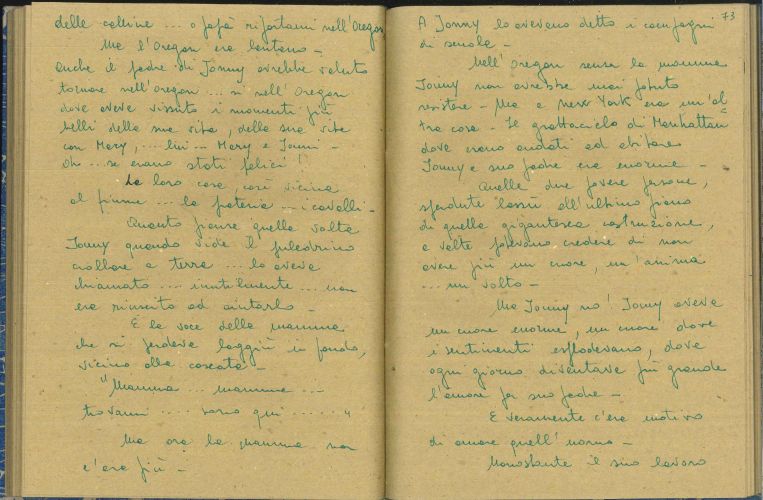 delle colline ... o papà riportami nell'Oregon
Ma l'Oregon era lontano -
anche il padre di Jonny avrebbe voluto
tornare nell'Oregon ... sì nell'Oregon
dove aveva vissuto i momenti più
belli della sua vita, della sua vita
con Mery, .... lui ... Mery e Jonni -
Oh ... se erano stati felici!
La loro casa, così vicina
al fiume ... la fattoria ... i cavalli -
Quanto pianse quella volta
Jonny quando vide il puledrino
crollare a terra ... lo aveva
chiamato .... inutilmente ... non
era riuscito ad aiutarlo -
E la voce della mamma
che si perdeva laggiù in fondo,
vicino alla cascata -
"Mamma ... mamma ...
trovami .... sono qui ..... "
Ma ora la mamma non
c'era più -
73
A Jonny lo avevano detto i compagni
di scuola -
Nell'Oregon senza la mamma
Jonny non avrebbe mai potuto
resistere - Ma a New York era un'al
tra cosa - Il grattacielo di Manhattan
dove erano andati ad abitare
Jonny e suo padre era enorme -
Quelle due povere persone,
sperdute lassù all'ultimo piano
di quella gigantesca costruzione,
a volte potevano credere di non
avere più un cuore, un'anima
... un volto -
Ma Jonny no! Jonny aveva
un cuore enorme, un cuore dove
i sentimenti esplodevano, dove
ogni giorno diventava più grande
l'amore per suo padre -
E veramente c'era motivo
di amare quell'uomo -
Nonostante il suo lavoro